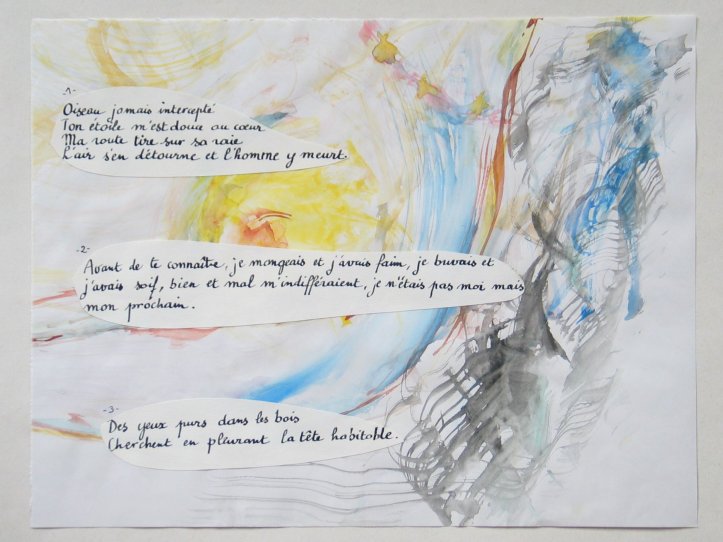 -1-
Oiseau jamais intercepté
Ton étoile m'est douce au cœur
Ma route tire sur sa raie
L'air s'en détourne et l'homme y meurt.
-2-
Avant de te connaître, je mangeais et j'avais faim, je buvais et
j'avais soif, bien et mal m'indifféraient, je n'étais pas moi mais
mon prochain.
-3-
Des yeux purs dans les bois
Cherchent en pleurant la tête habitable.